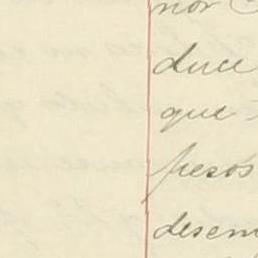 nor
duce
que
pesos
desem